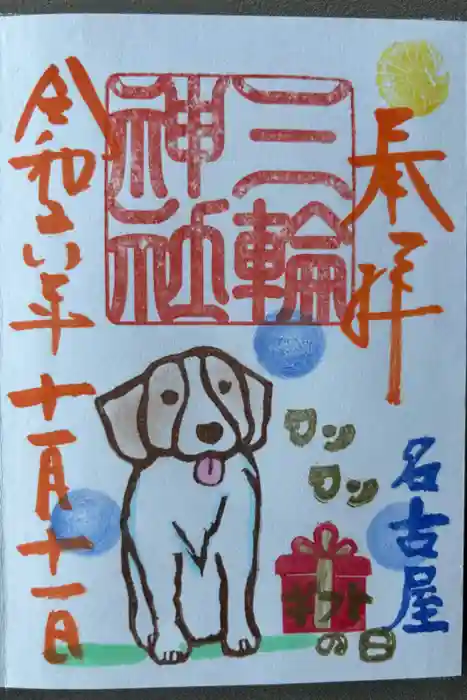 奉拝
名古屋
三輪
神社
ワン
ワン
ギフト
の日
令和六年十一月十一日